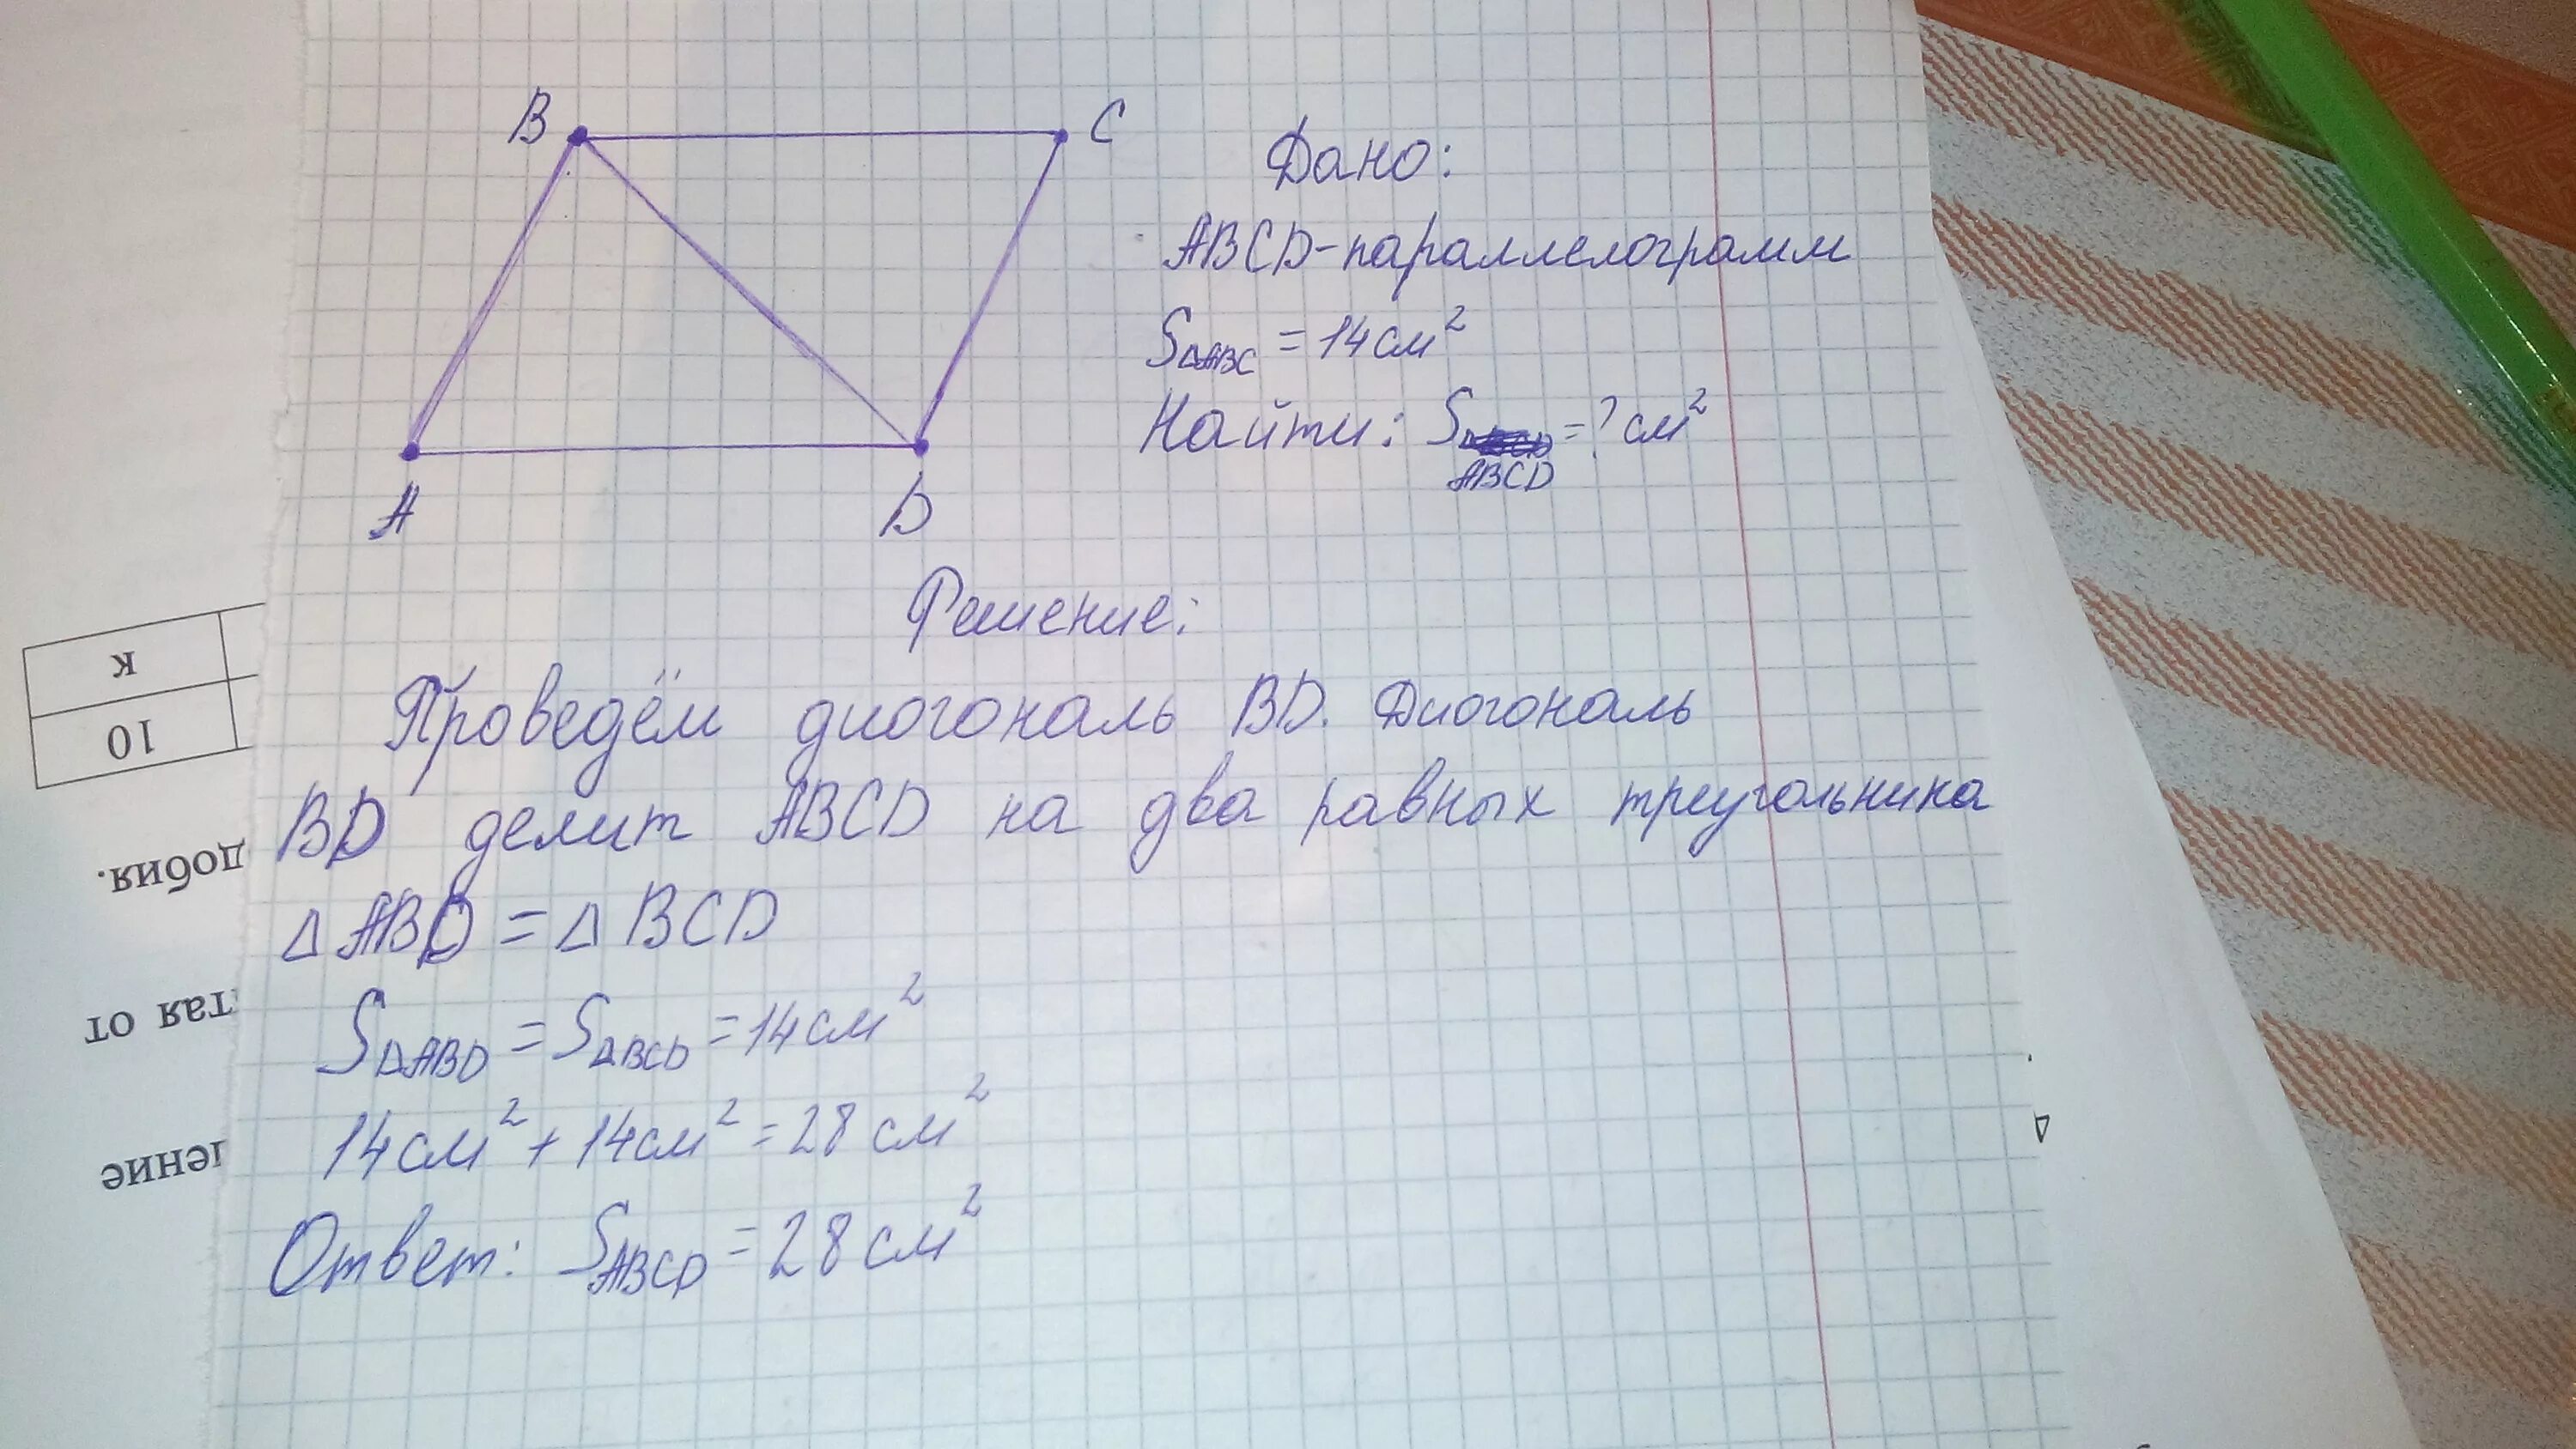 B
C
A
D
Дано:
ABCD-параллелограмм
S△ABC = 14см²
Найти: S = ? см²
ABCD
Решение:
Проведём диогональ BD. Диогональ
BD делит ABCD на два равных треугольника
△ABD = △BCD
S△ABD = S△BCD = 14см²
14см² + 14см² = 28 см²
Ответ: SABCD = 28 см²
к
10
добия.
тая от
ение
△